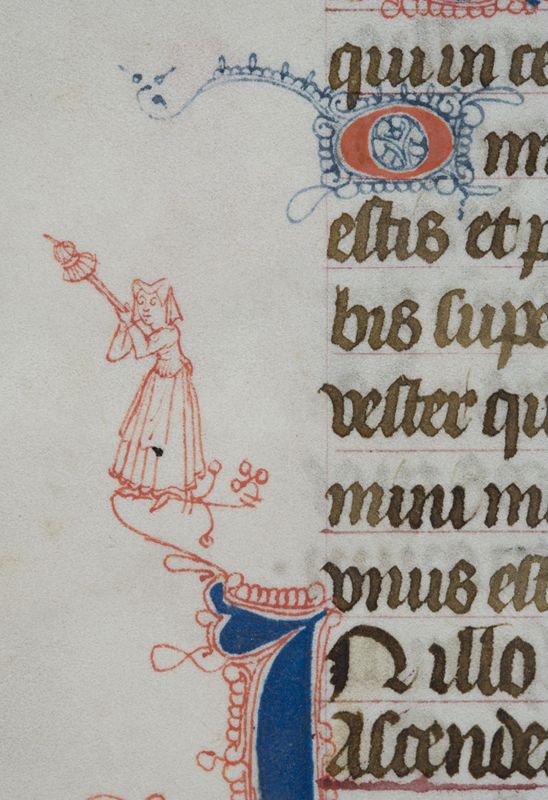 qui in ce
Om
estis et p
bis supe
vester qu
mini m
vnus est
IN illo
Ascende